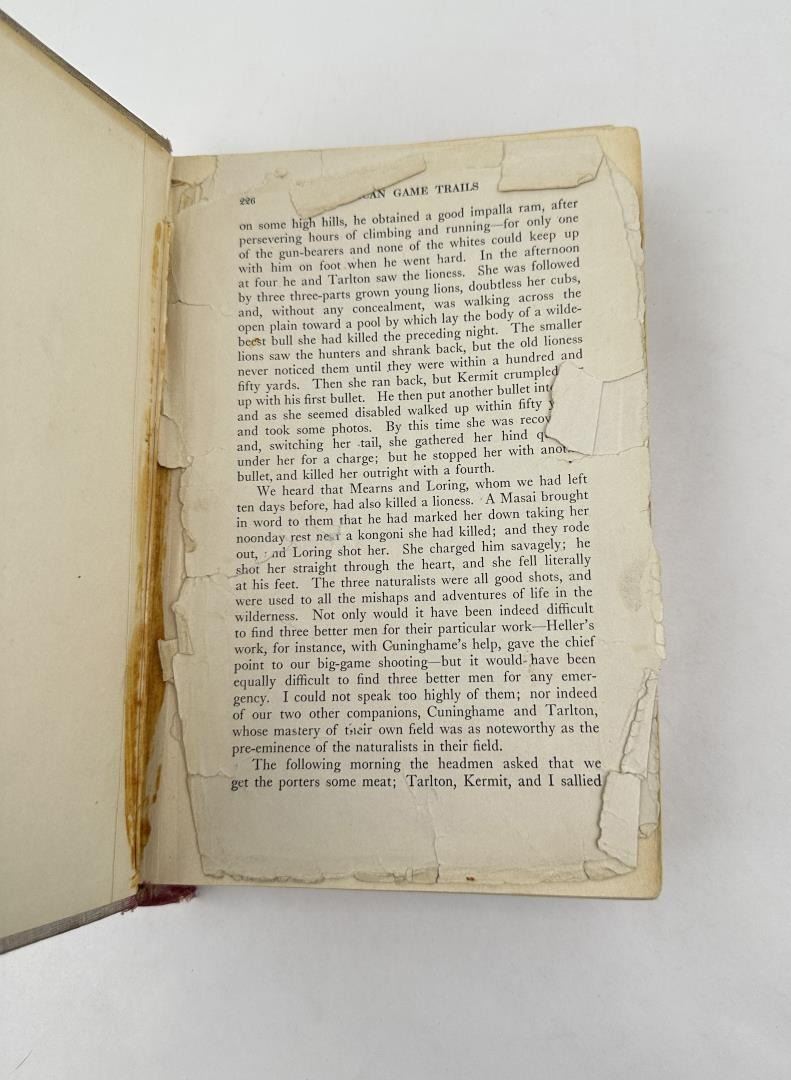 226
CAN GAME TRAILS
on some high hills, he obtained a good impalla ram, after
persevering hours of climbing and running—for only one
of the gun-bearers and none of the whites could keep up
with him on foot when he went hard. In the afternoon
at four he and Tarlton saw the lioness. She was followed
by three three-parts grown young lions, doubtless her cubs,
and, without any concealment, was walking across the
open plain toward a pool by which lay the body of a wilde-
beest bull she had killed the preceding night. The smaller
lions saw the hunters and shrank back, but the old lioness
never noticed them until they were within a hundred and
fifty yards. Then she ran back, but Kermit crumpled
up with his first bullet. He then put another bullet int
and as she seemed disabled walked up within fifty y
and took some photos. By this time she was recov
and, switching her tail, she gathered her hind q
under her for a charge; but he stopped her with anot
bullet, and killed her outright with a fourth.
We heard that Mearns and Loring, whom we had left
ten days before, had also killed a lioness. A Masai brought
in word to them that he had marked her down taking her
noonday rest near a kongoni she had killed; and they rode
out, nd Loring shot her. She charged him savagely; he
shot her straight through the heart, and she fell literally
at his feet. The three naturalists were all good shots, and
were used to all the mishaps and adventures of life in the
wilderness. Not only would it have been indeed difficult
to find three better men for their particular work—Heller's
work, for instance, with Cuninghame's help, gave the chief
point to our big-game shooting—but it would have been
equally difficult to find three better men for any emer-
gency. I could not speak too highly of them; nor indeed
of our two other companions, Cuninghame and Tarlton,
whose mastery of their own field was as noteworthy as the
pre-eminence of the naturalists in their field.
The following morning the headmen asked that we
get the porters some meat; Tarlton, Kermit, and I sallied